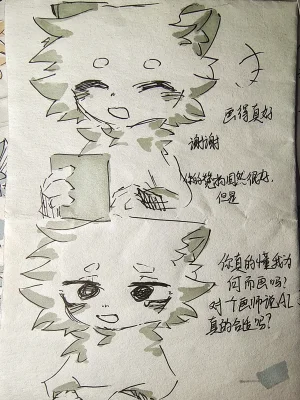 画得真好
谢谢
你的赞美固然很好，
但是
你真的懂我为
何而画吗？
对个画师说AI
真的合适吗？